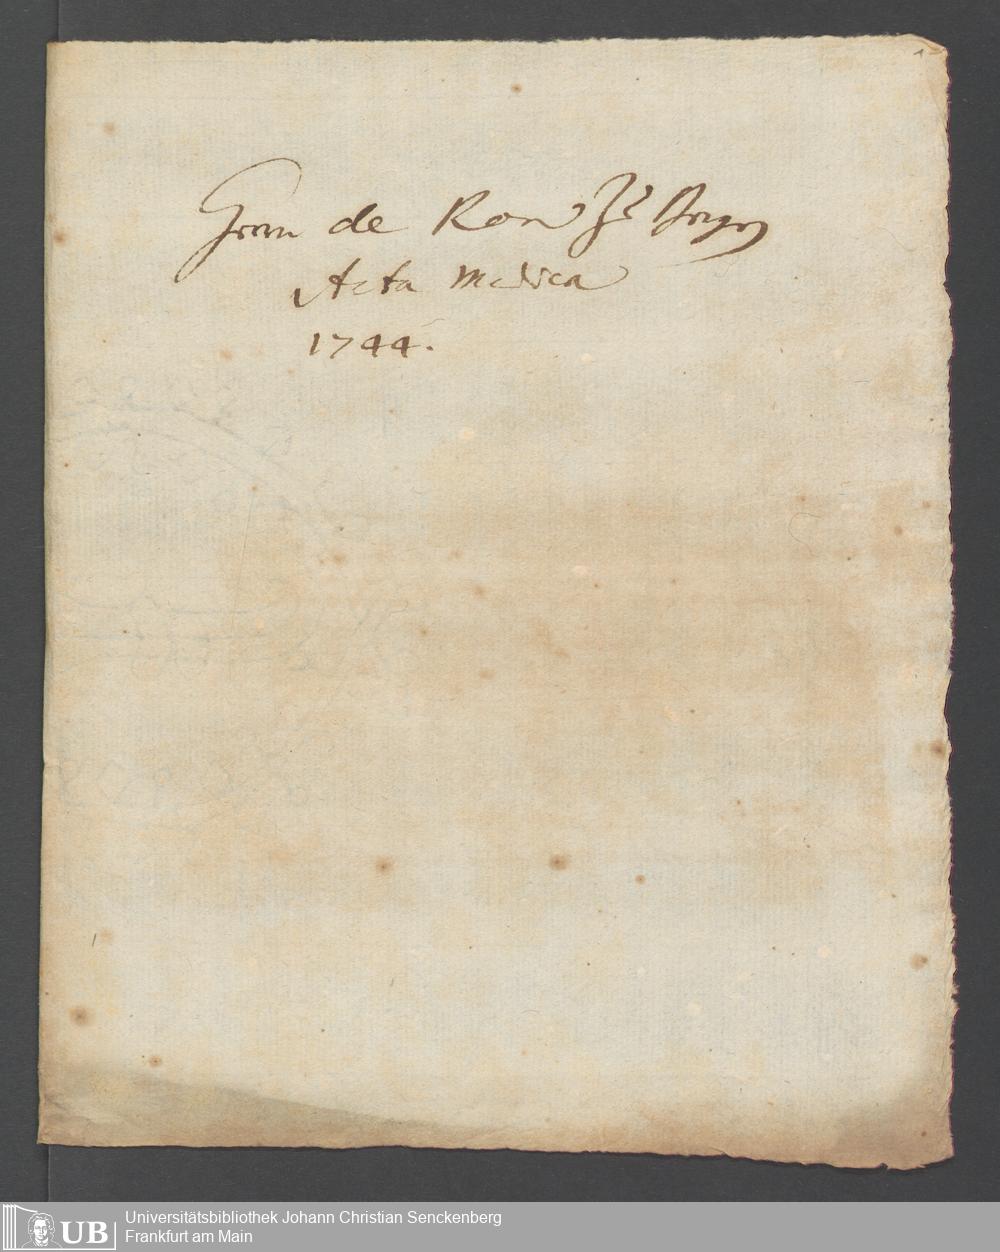 de Ron
Acta Medica
1744.
UB Universitätsbibliothek Johann Christian Senckenberg
Frankfurt am Main